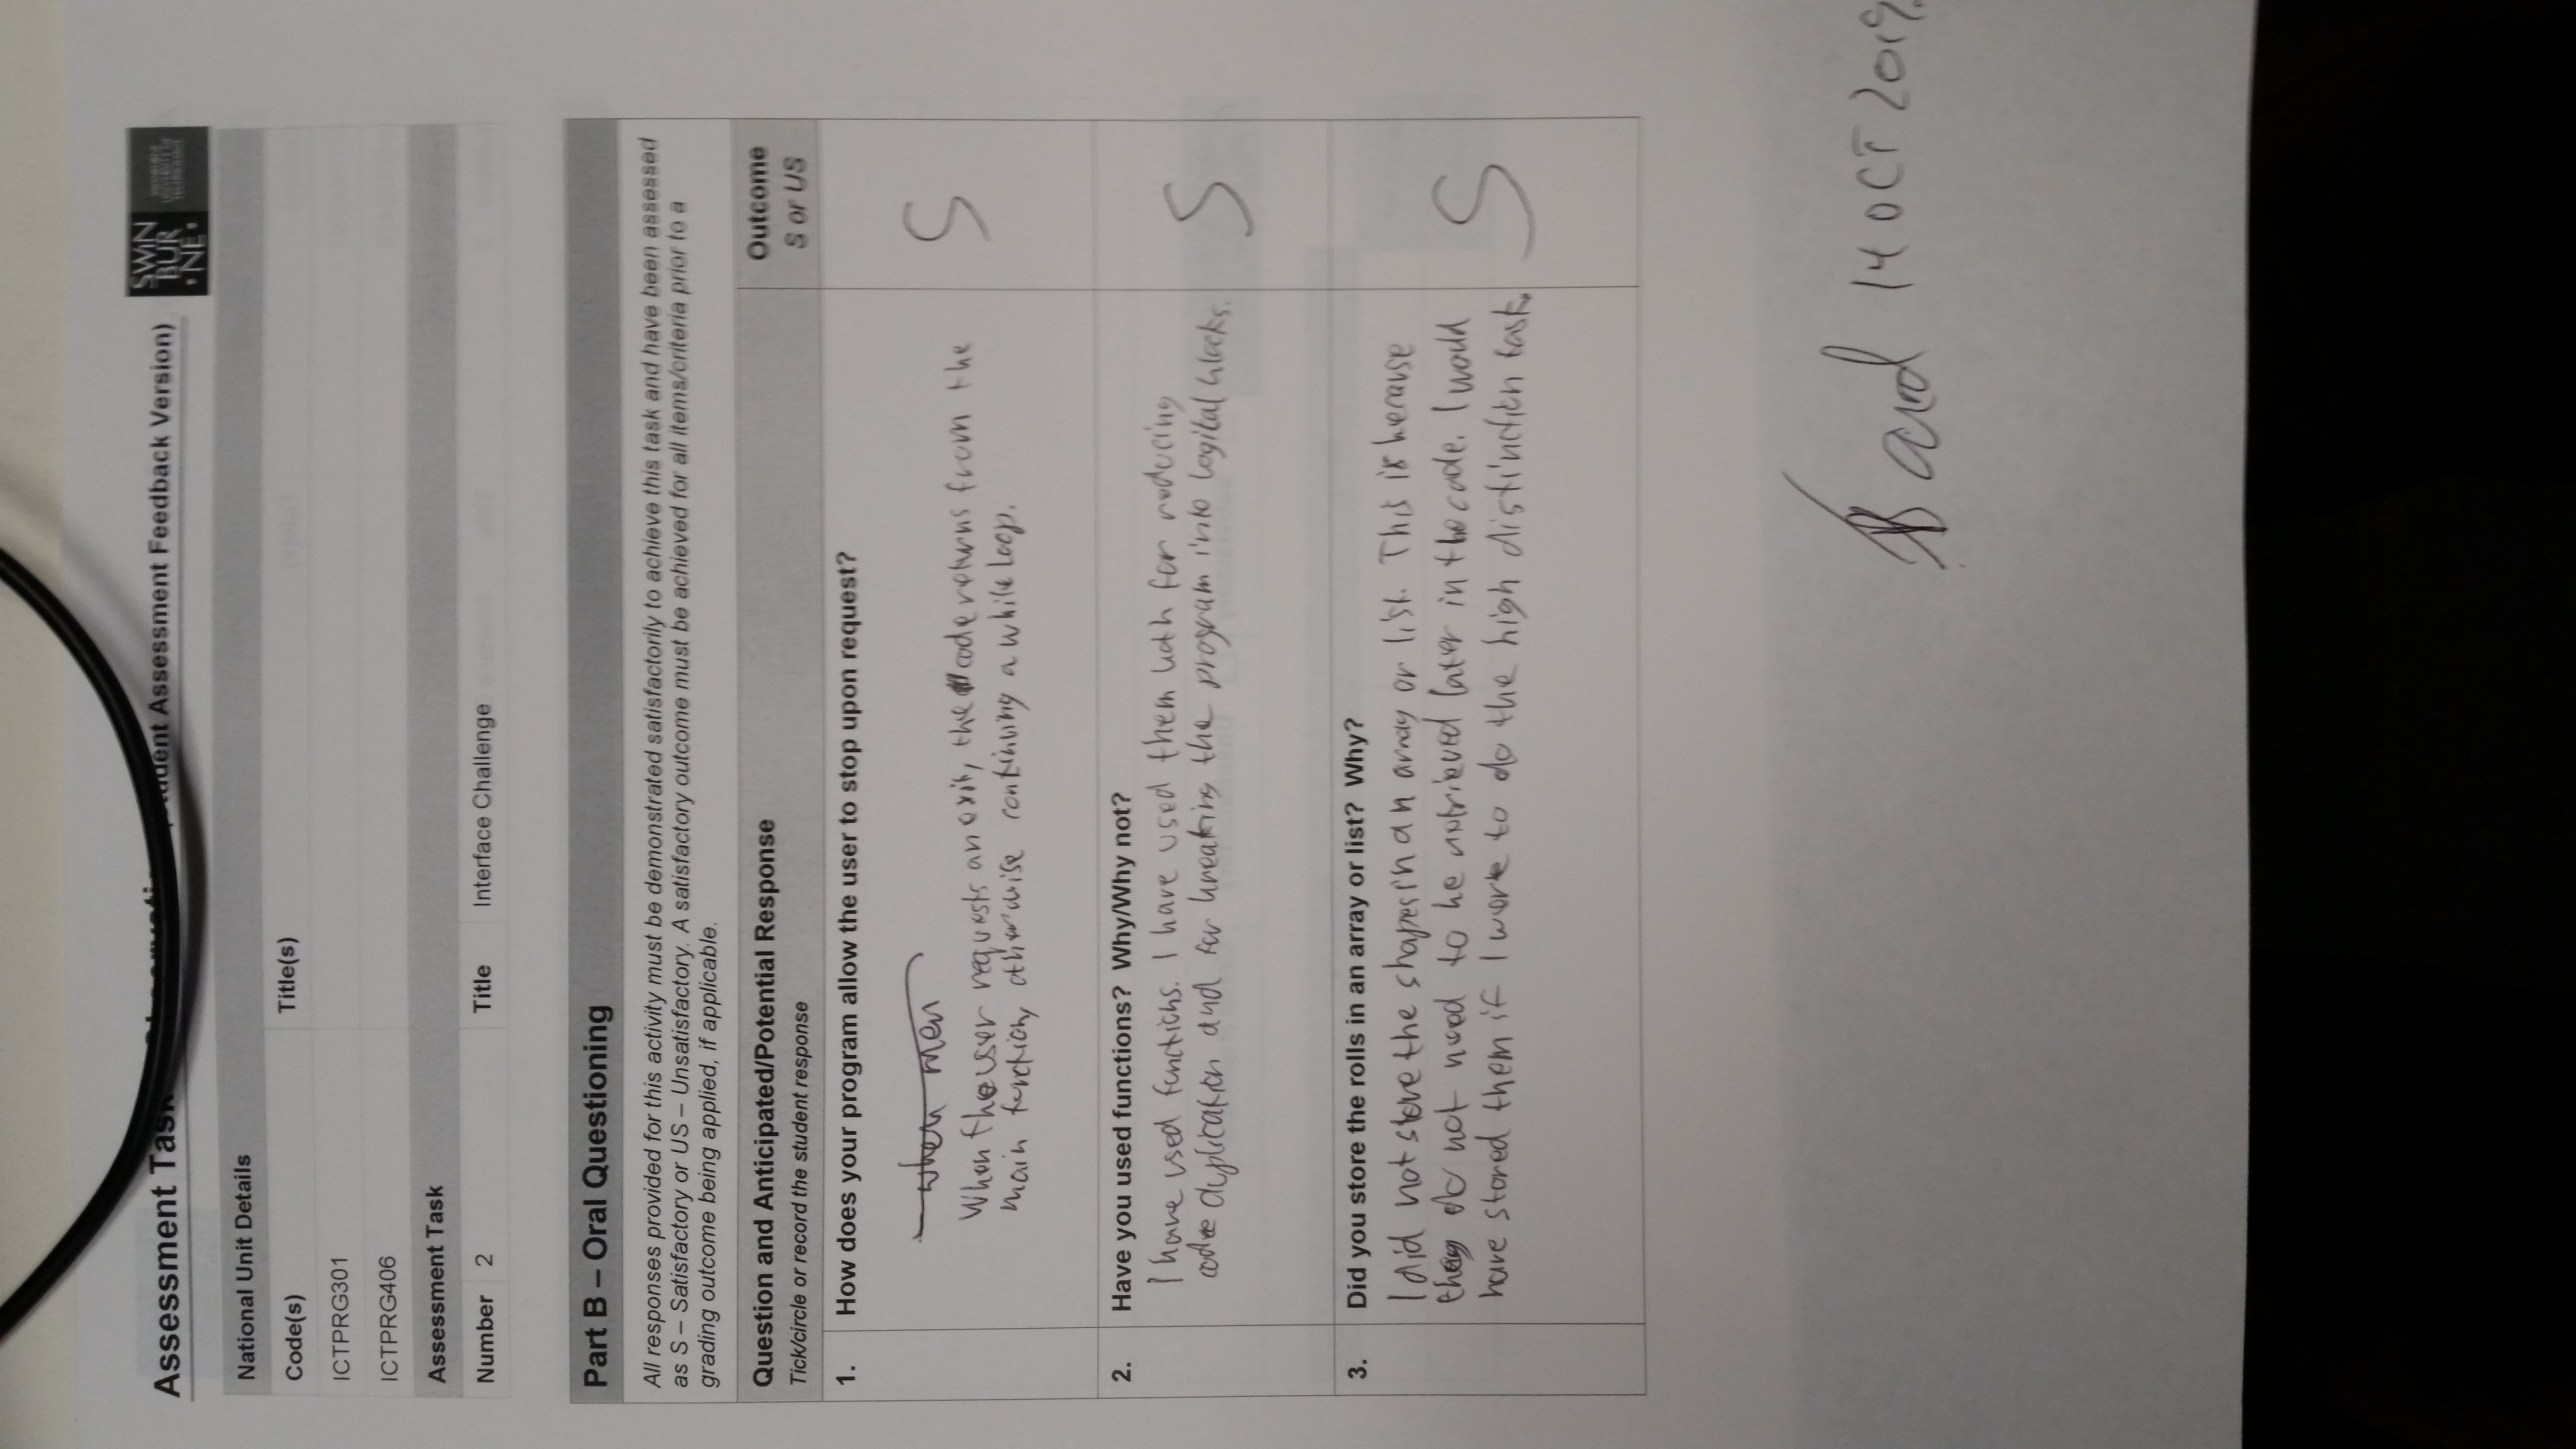 Assessment Task Observation (Student Assessment Feedback Version)
SWiN
BUR
* NE *
SWINBURNE
UNIVERSITY OF
TECHNOLOGY
National Unit Details
Code(s) Title(s)
ICTPRG301
ICTPRG406
Assessment Task
Number 2 Title Interface Challenge
Part B – Oral Questioning
All responses provided for this activity must be demonstrated satisfactorily to achieve this task and have been assessed
as S – Satisfactory or US – Unsatisfactory. A satisfactory outcome must be achieved for all items/criteria prior to a
grading outcome being applied, if applicable.
Question and Anticipated/Potential Response
Tick/circle or record the student response
Outcome
S or US
1. How does your program allow the user to stop upon request?
when men
When the user requests an exit, the code returns from the
main function, otherwise continuing a while loop.
S
2. Have you used functions? Why/Why not?
I have used functions. I have used them both for reducing
code duplication and for breaking the program into logical blocks.
S
3. Did you store the rolls in an array or list? Why?
I did not store the shapes in an array or list. This is because
they do not need to be retrieved later in the code. I would
have stored them if I were to do the high distinction task.
S
14 OCT 2019